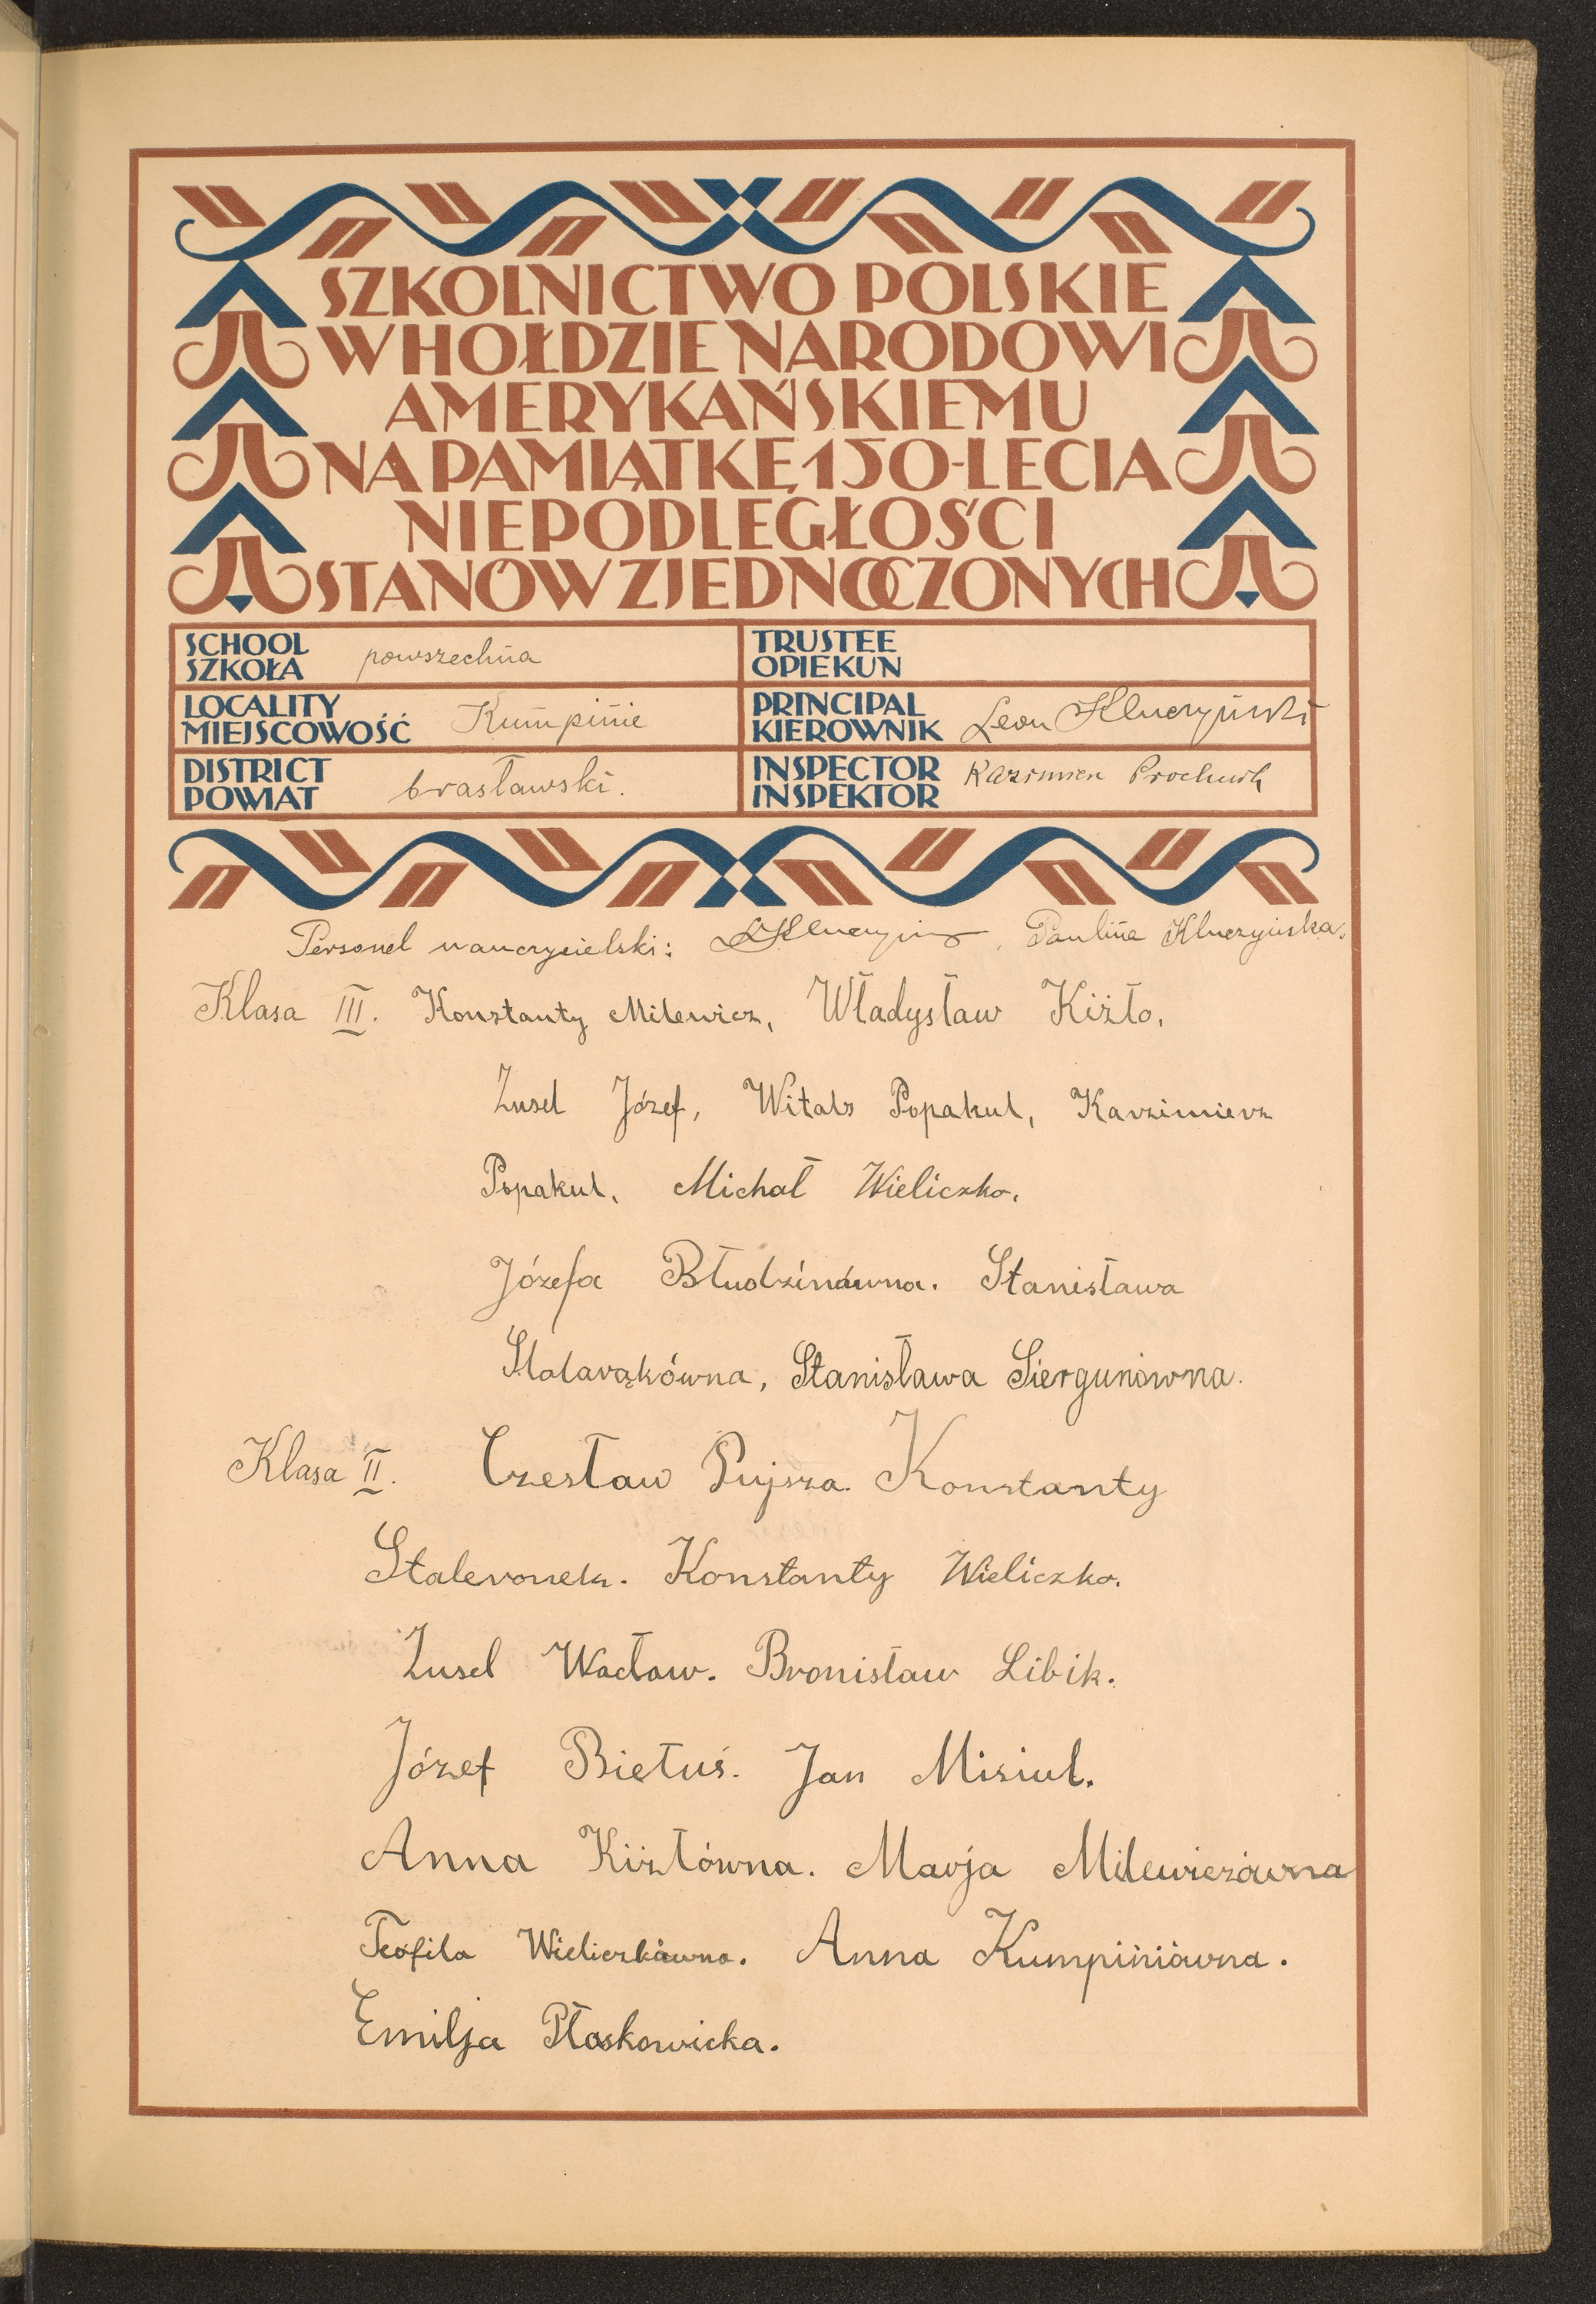 SZKOLNICTWO POLSKIE
W HOŁDZIE NARODOWI
AMERYKAŃSKIEMU
NA PAMIĄTKĘ 150-LECIA
NIEPODLEGŁOŚCI
STANÓW ZJEDNOCZONYCH
SCHOOL
SZKOŁA powszechna
TRUSTEE
OPIEKUN
LOCALITY
MIEJSCOWOŚĆ Kumpinie
PRINCIPAL
KIEROWNIK Leon Kluczyński
DISTRICT
POWIAT brasławski.
INSPECTOR
INSPEKTOR Kazimierz
Personel nauczycielski: LKluczyński, Paulina Kluczyńska.
Klasa III. Konstanty Milewicz, Władysław Kiżło,
Zusel Józef, Witals Popakul, Karzimierz
Popakul, Michał Wieliczko,
Józefa Błudzinówna. Stanisława
Stanisława Siergunówna.
Klasa II. Czesław Pujsza. Konstanty
Stalevonek. Konstanty Wieliczko.
Zusel Wacław. Bronisław Libik.
Józef Biełuś. Jan Misiul.
Anna Kiżłówna. Marja Milewiczówna
Teofila Wieliczkówna. Anna Kumpiniówna.
Emilja Płoskowicka.